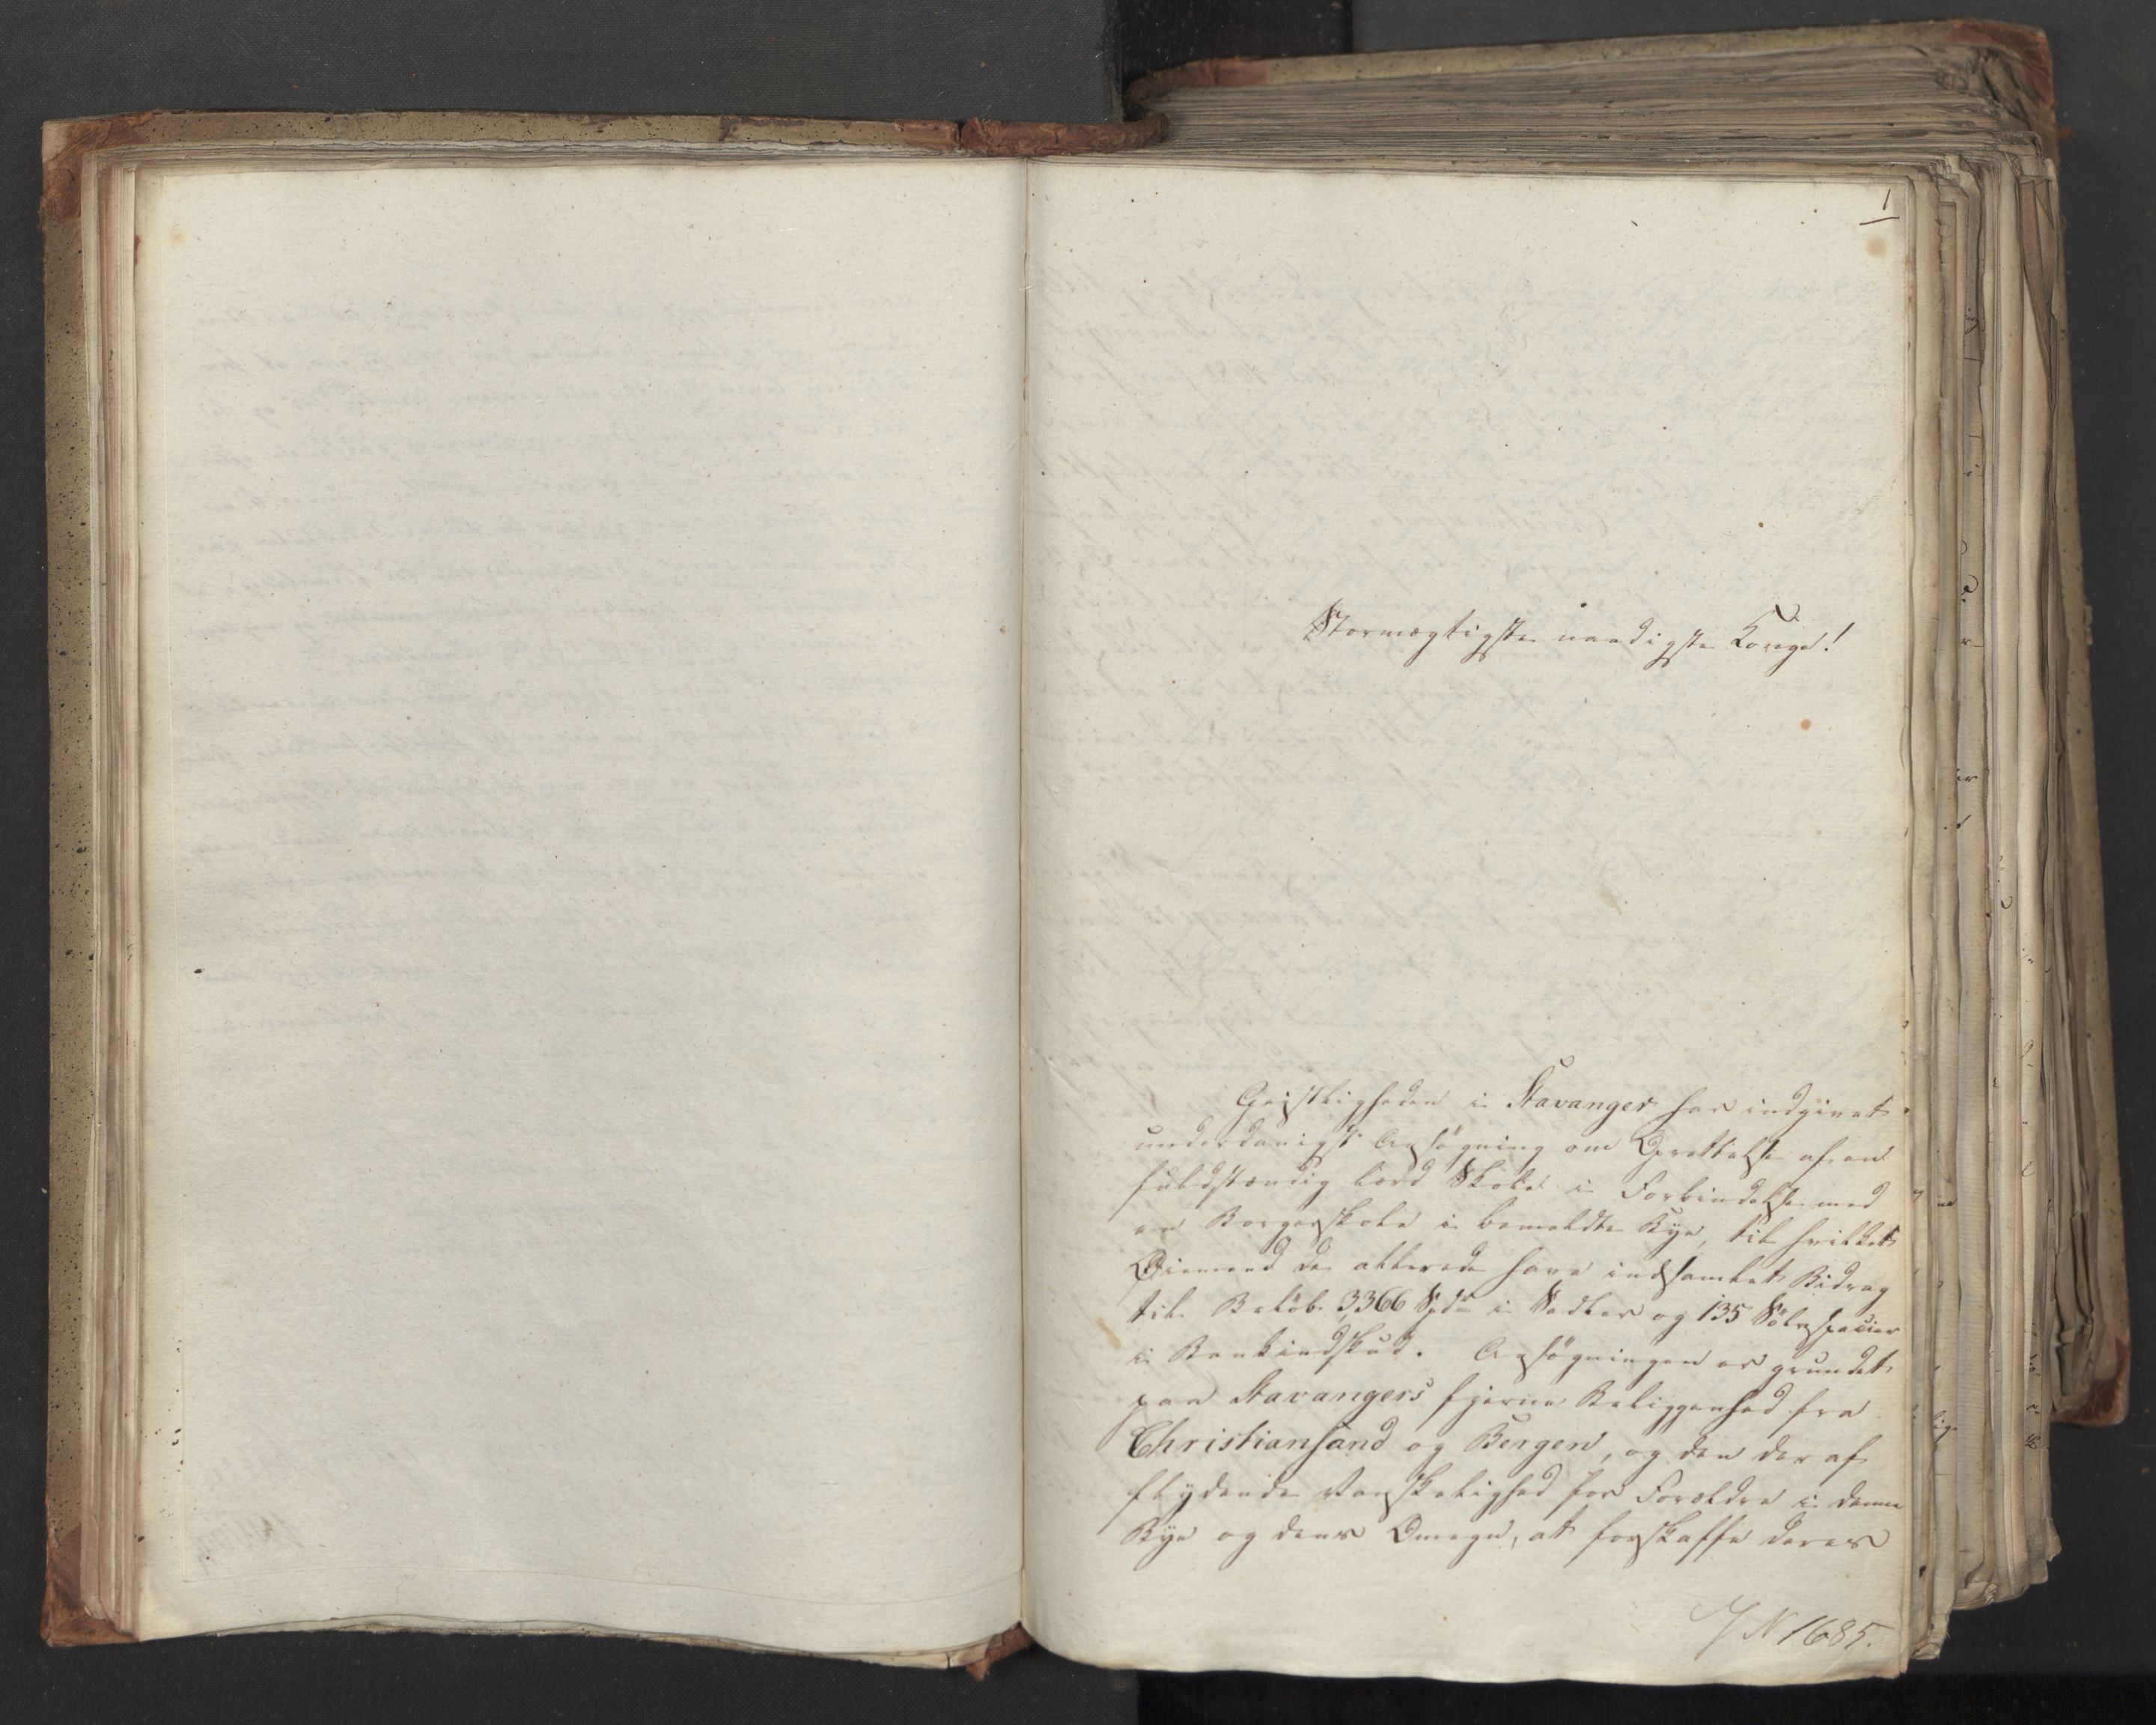 1
Stormægtigste naadigste Konge!
Geistligheden i Stavanger har indgivet
underdanigst Ansøgning om Oprettelse af en
fuldstændig lærd Skole i Forbindelse med
en Borgerskole i bemeldte Bye, til hvilket
Øiemed de allerede have indsamlet Bidrag
til Beløb 3366 Spd i Sedler og 135 Sølvspecier
i Bankindskud. Ansøgningen er grundet
paa Stavangers fjerne Beliggenhed fra
Christiansand og Bergen, og den deraf
flydende Vanskelighed for Forældre i denne
Bye og dens Omegn, at forskaffe deres
J N 1685.